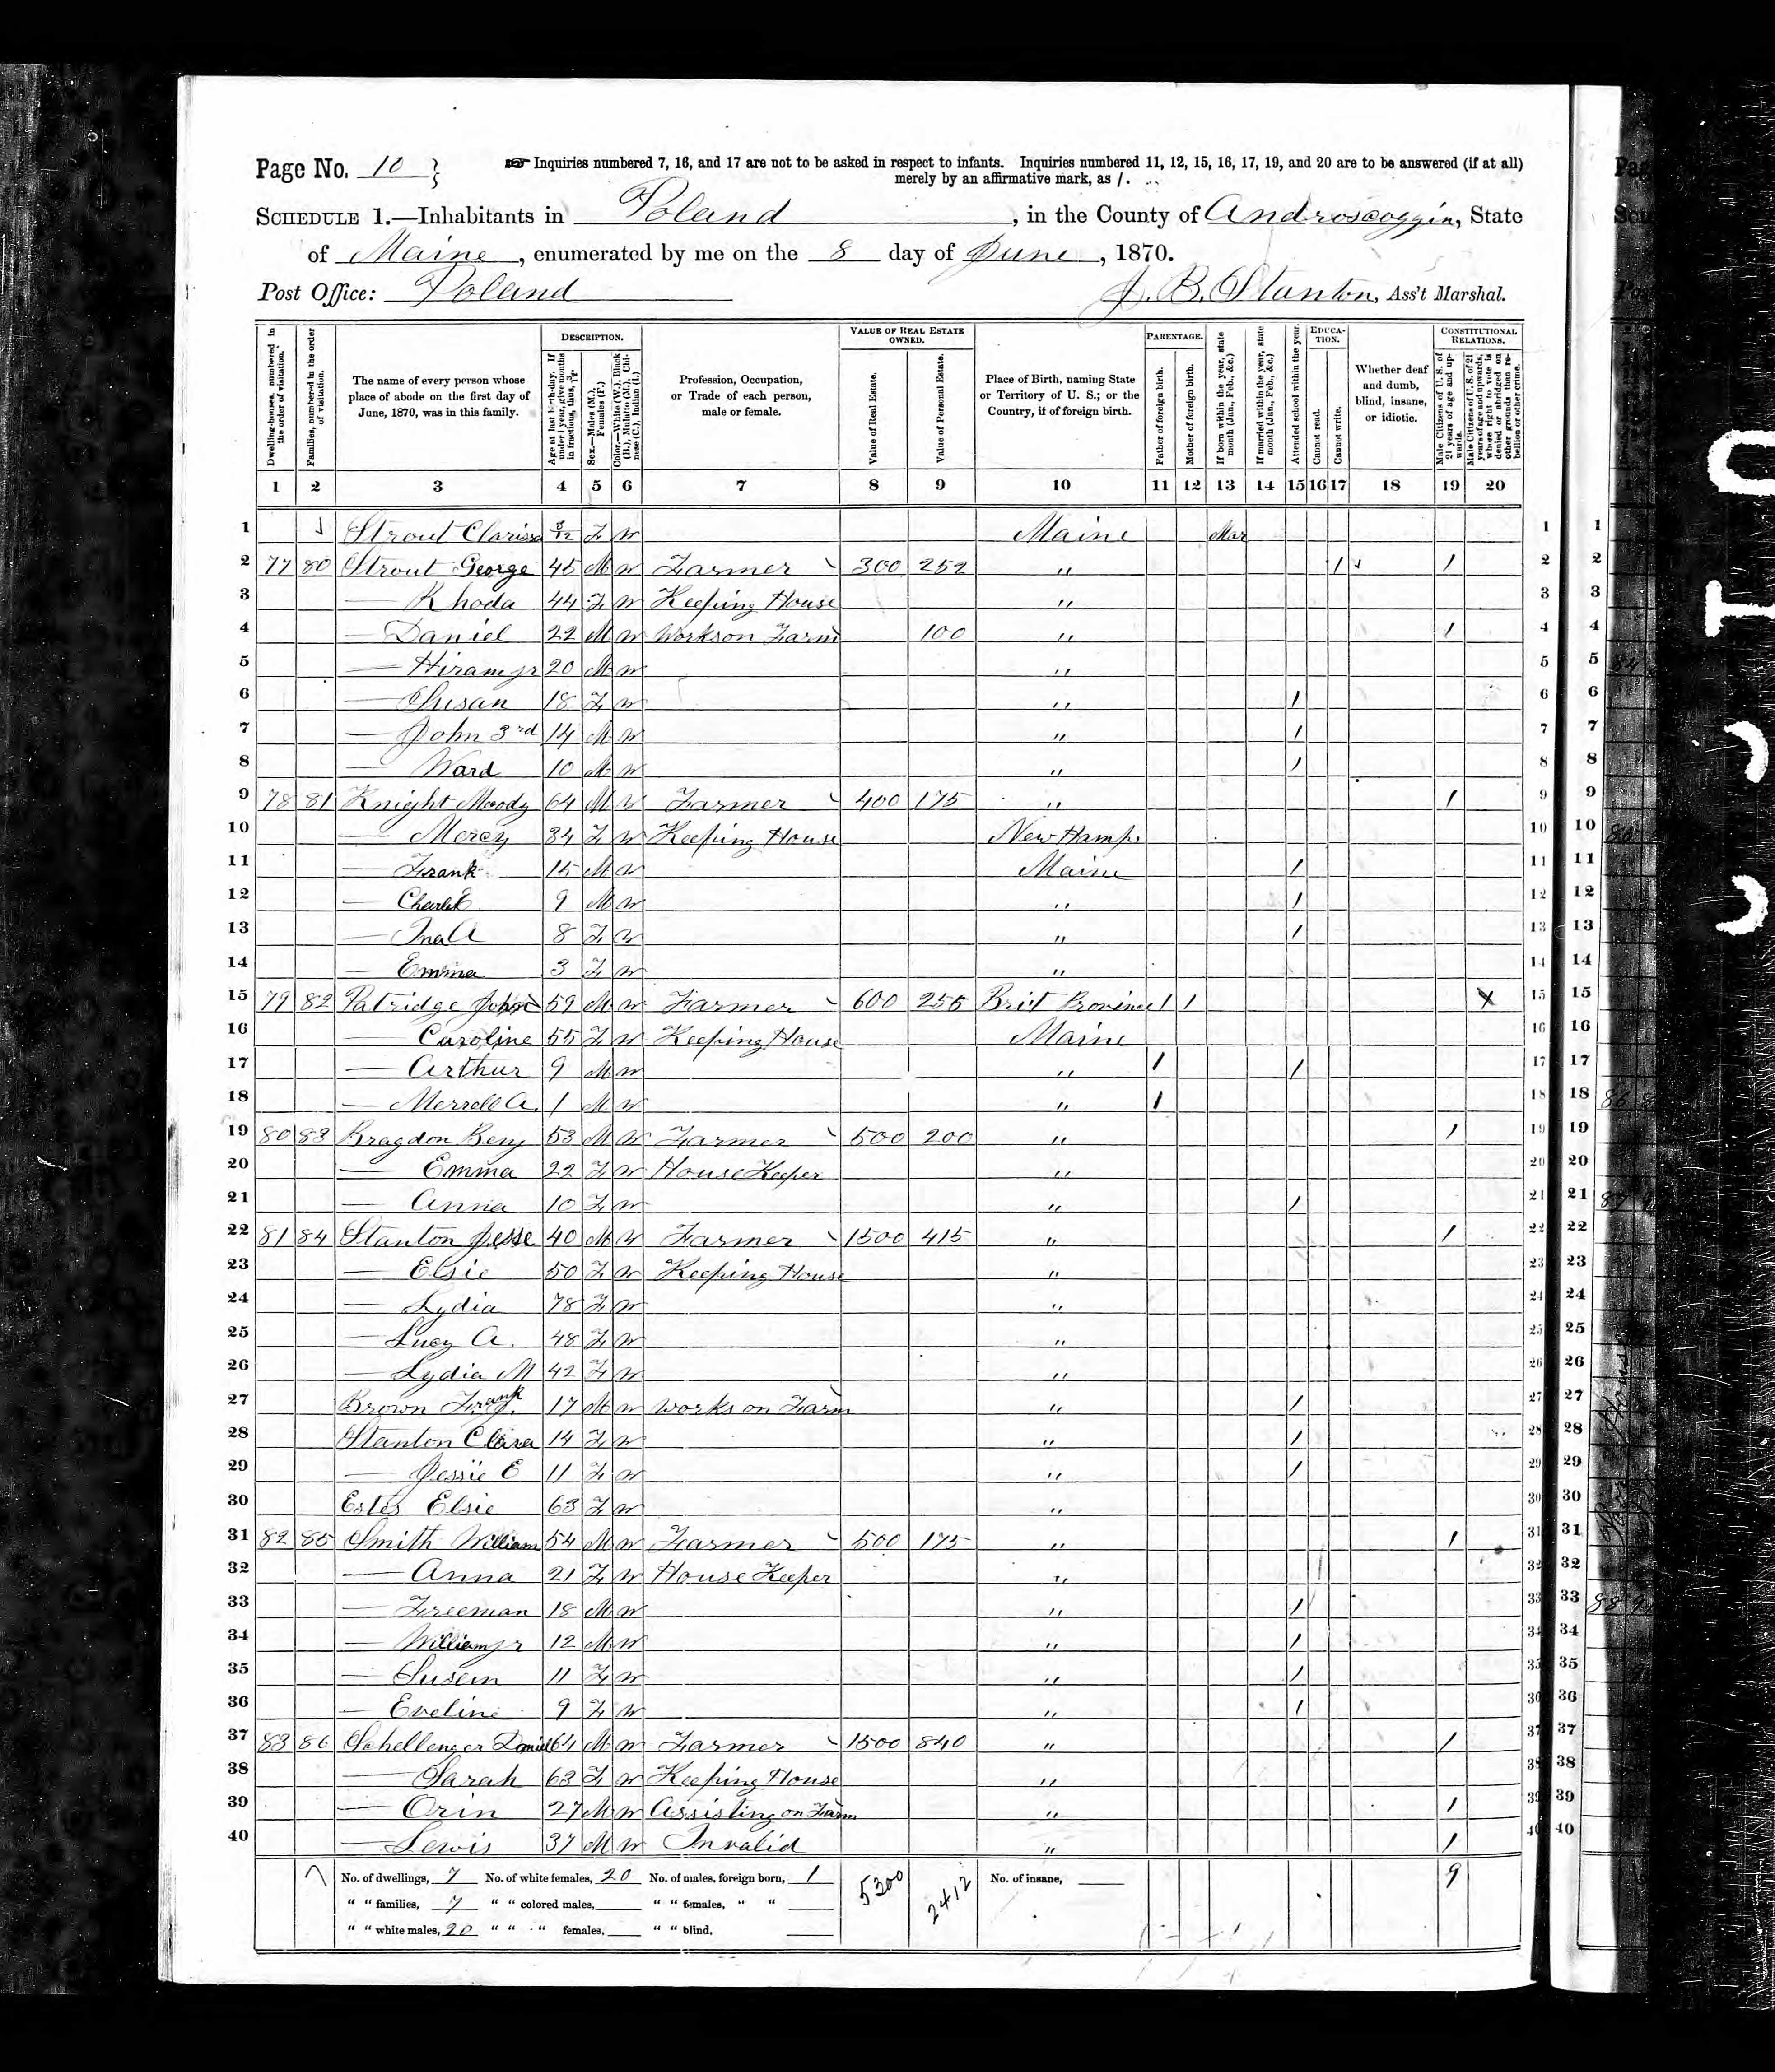 Page No. 10
Inquiries numbered 7, 16, and 17 are not to be asked in respect to infants. Inquiries numbered 11, 12, 15, 16, 17, 19, and 20 are to be answered (if at all)
merely by an affirmative mark, as /.
SCHEDULE 1.—Inhabitants in Poland, in the County of Androscoggin, State
of Maine, enumerated by me on the 8 day of June, 1870.
Post Office: Poland
J. B. Stanton, Ass't Marshal.
Dwelling-houses, numbered in the order of visitation.
Families, numbered in the order of visitation.
The name of every person whose place of abode on the first day of June, 1870, was in this family.
DESCRIPTION.
Age at last birth-day. If under 1 year, give months in fractions, thus, 3/12.
Sex.—Males (M.), Females (F.)
Color.—White (W.), Black (B.), Mulatto (M.), Chinese (C.), Indian (I.)
Profession, Occupation, or Trade of each person, male or female.
VALUE OF REAL ESTATE OWNED.
Value of Real Estate.
Value of Personal Estate.
Place of Birth, naming State or Territory of U. S.; or the Country, if of foreign birth.
PARENTAGE.
Father of foreign birth.
Mother of foreign birth.
If born within the year, state month (Jan., Feb., &c.)
If married within the year, state month (Jan., Feb., &c.)
Attended school within the year.
EDUCATION.
Cannot read.
Cannot write.
Whether deaf and dumb, blind, insane, or idiotic.
CONSTITUTIONAL RELATIONS.
Male Citizens of U. S. of 21 years of age and upwards.
Male Citizens of U. S. of 21 years of age and upwards, whose right to vote is denied or abridged on other grounds than rebellion or other crime.
1 2 3 4 5 6 7 8 9 10 11 12 13 14 15 16 17 18 19 20
1 Strout Clarissa 3/12 F W Maine Mar 1
2 77 80 Strout George 45 M W Farmer 300 252 " / / 2
3 — Rhoda 44 F W Keeping House " 3
4 — Daniel 22 M W Works on Farm 100 " / 4
5 — Hiram Jr 20 M W " 5
6 — Susan 18 F W " / 6
7 — John 3rd 14 M W " / 7
8 — Ward 10 M W " / 8
9 78 81 Knight Moody 64 M W Farmer 400 175 " / 9
10 — Mercy 34 F W Keeping House New Hamps 10
11 — Frank 15 M W Maine / 11
12 — Charles E 9 M W " / 12
13 — Ina A 8 F W " / 13
14 — Emma 3 F W " 14
15 79 82 Patridge John 59 M W Farmer 600 255 Brit Province / / X 15
16 — Caroline 55 F W Keeping House Maine 16
17 — Arthur 9 M W " / / 17
18 — Merrell A. 1 M W " / 18
19 80 83 Bragdon Benj 53 M W Farmer 500 200 " / 19
20 — Emma 22 F W House Keeper " 20
21 — Anna 10 F W " / 21
22 81 84 Stanton Jesse 40 M W Farmer 1500 415 " / 22
23 — Elsie 50 F W Keeping House " 23
24 — Lydia 78 F W " 24
25 — Lucy A. 48 F W " 25
26 — Lydia M 42 F W " 26
27 Brown Frank J. 17 M W Works on Farm " / 27
28 Stanton Clara 14 F W " / 28
29 — Jessie E 11 F W " / 29
30 Estes Elsie 63 F W " 30
31 82 85 Smith William 54 M W Farmer 500 175 " / 31
32 — Anna 21 F W House Keeper " 32
33 — Freeman 18 M W " / 33
34 — William Jr 12 M W " / 34
35 — Susan 11 F W " / 35
36 — Eveline 9 F W " / 36
37 83 86 Schellenger Daniel 64 M W Farmer 1500 840 " / 37
38 — Sarah 63 F W Keeping House " 38
39 — Orin 27 M W Assisting on Farm " / 39
40 — Lewis 37 M W Invalid " / 40
No. of dwellings, 7 No. of white females, 20 No. of males, foreign born, 1 5300 2412 No. of insane, 9
" " families, 7 " " colored males, " " females, " "
" " white males, 20 " " " females, " " blind,